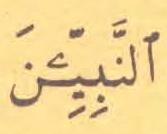 ٱلنَّبِيِّۧنَ